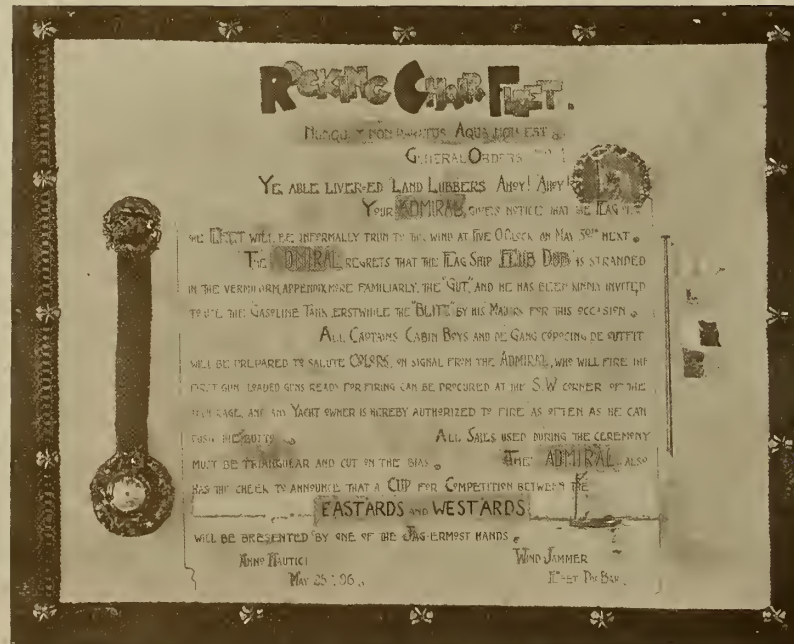 ROCKING CHAIR FLEET.
AQUA NON EST
GENERAL ORDERS
YE ABLE LIVER-ED LAND LUBBERS AHOY! AHOY!
YOUR ADMIRAL, GIVES NOTICE THAT THE FLAG OF
THE FLEET WILL BE INFORMALLY TRUN TO THE WIND AT FIVE O'CLOCK ON MAY 30TH NEXT.
THE ADMIRAL REGRETS THAT THE FLAG SHIP FLUB DUB IS STRANDED
IN THE VERMIFORM APPENDIX, MORE FAMILIARLY, THE "GUT," AND HE HAS BEEN KINDLY INVITED
TO USE THE GASOLINE TANK, ERSTWHILE THE "BLITZ" BY HIS MAJORS FOR THIS OCCASION.
ALL CAPTAINS CABIN BOYS AND DE GANG COPOCING DE OUTFIT
WILL BE PREPARED TO SALUTE COLORS, ON SIGNAL FROM THE ADMIRAL, WHO WILL FIRE THE
FIRST GUN. LOADED GUNS READY FOR FIRING CAN BE PROCURED AT THE S.W CORNER OF THE
AND ANY YACHT OWNER IS HEREBY AUTHORIZED TO FIRE AS OFTEN AS HE CAN
PUSH THE BUTTON. ALL SAILS USED DURING THE CEREMONY
MUST BE TRIANGULAR AND CUT ON THE BIAS. THE ADMIRAL, ALSO
HAS THE CHEEK TO ANNOUNCE THAT A CUP FOR COMPETITION BETWEEN THE
EASTARDS AND WESTARDS
WILL BE PRESENTED BY ONE OF THE JAG-ERMOST HANDS.
ANNO NAUTICI WIND JAMMER
MAY 25 '96.